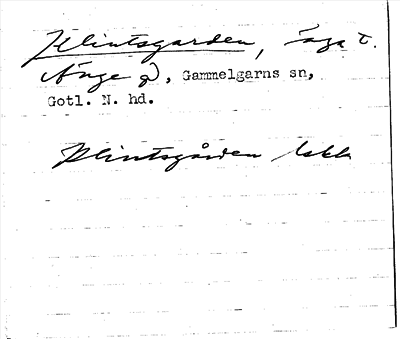 Klintsgarden, saga t.
Ånge g), Gammelgarns sn,
Gotl. N. hd.
Klintsgården